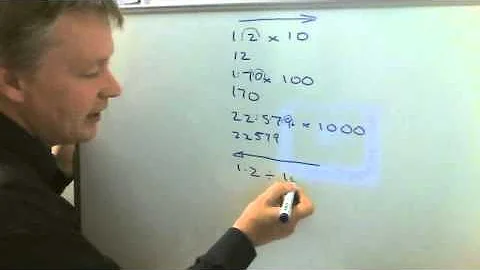 1.2 x 10
12
1.70 x 100
170
22.579 x 1000
22579
1.2 ÷ 1